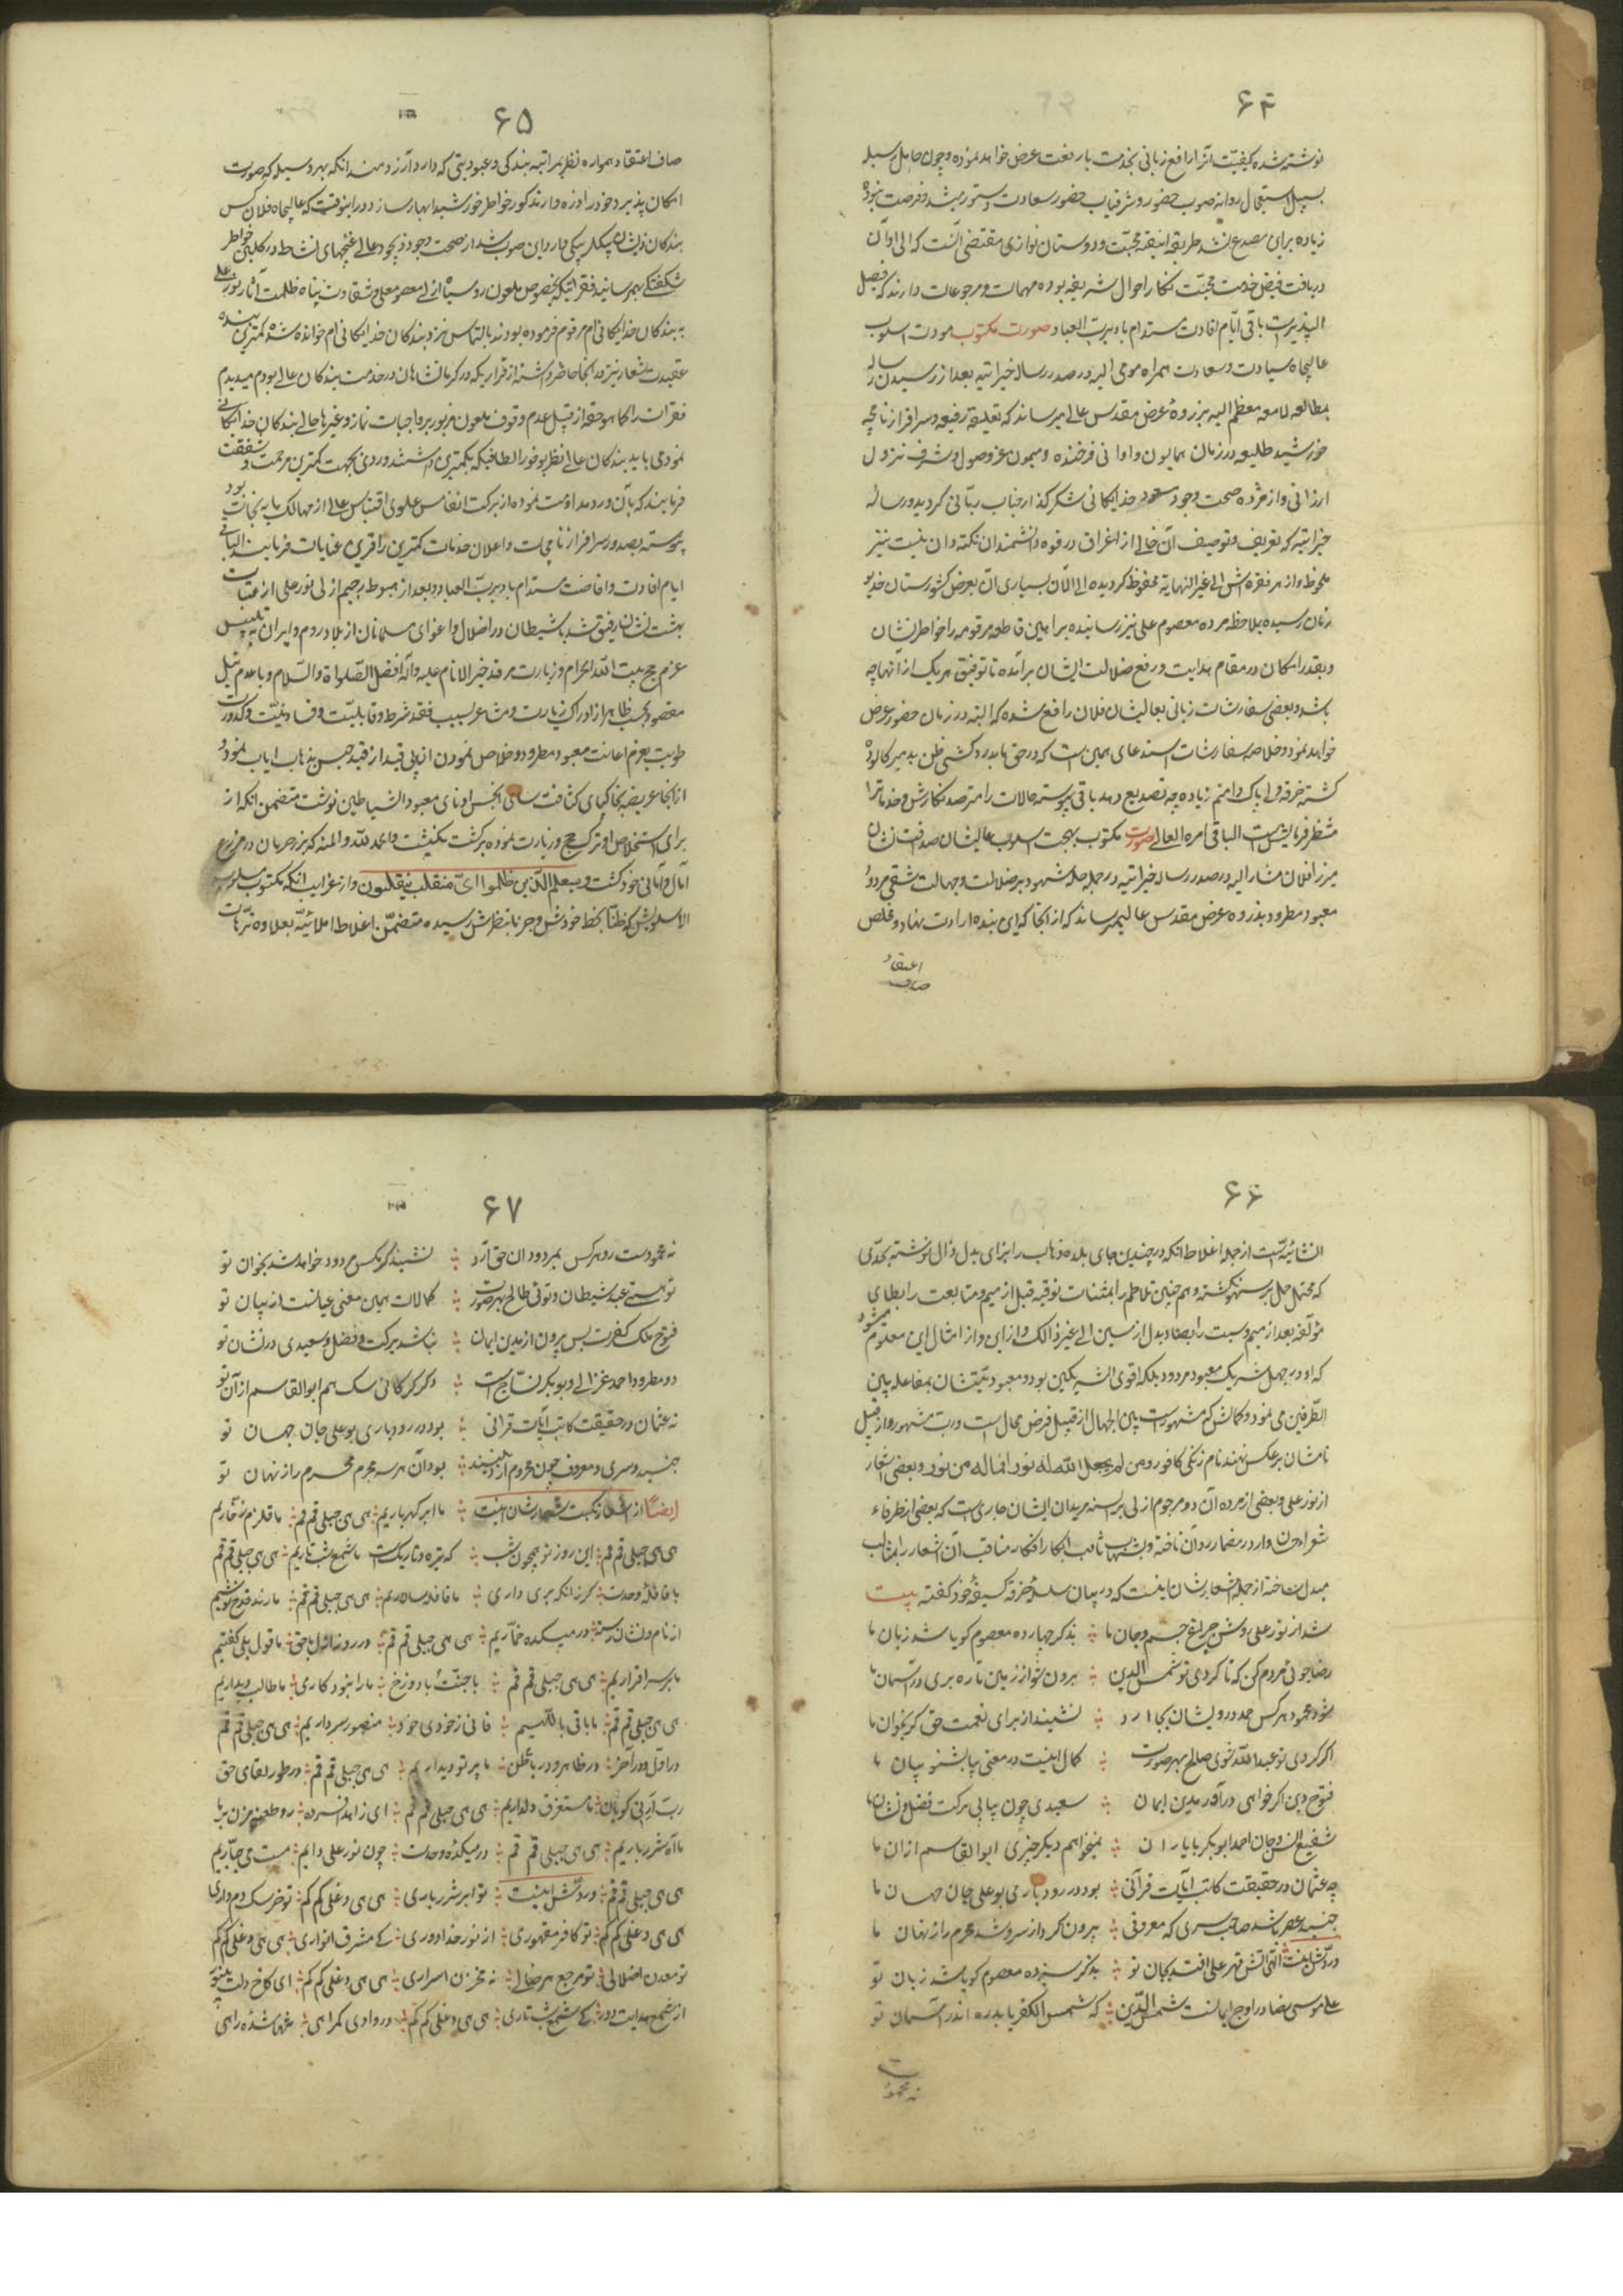 ۶۴
نوشته شده کیفیت آنرا رافع زبانی بخدمت بارفعت عرض خواهد نموده و چون حامل رسیله
بسبیل استعجال روانه صوب حضور و شرفیاب حضور سعادت دستور میشد و فرصت نبود
زیاده برای مصدع نشد طریقه انیقه محبت و دوستان نوازی مقتضی آنست که الی اوان
دریافت فیض خدمت محبت نگار احوال شریفه بوده مهمات و مرجوعات دارند که فیصل
الپذیر است باقی ایام افادت مستدام باد برب العباد صورت مکتوب مودت اسلوب
عالیجاه سیادت و سعادت همراه مومی الیه در صدر رساله خیراتیه بعد از رسیدن رساله
بمطالعه لامعه معظم الیه بذروهٔ عرض مقدس عالی میرساند که تعلیقه رفیعه و سرافراز نامچه
خورشید طلیعه در زمان همایون و اوانی فرخنده و میمون عز وصول و شرف نزول
ارزانی و از مژده صحت وجود مسعود خدایگانی شکرگذار جناب ربانی گردید و رساله
خیراتیه که تعریف و توصیف آن خالی از اغراق در قوه دانشمندان نکته دان نیست نیز
ملحوظ و از هر فقره اش الی غیر النهایه محظوظ گردیده الی الآن بسیاری آن بعرض کشورستان خدیو
زمان رسیده بملاحظه مرده معصوم علی نیز رسانیده براهین قاطعه مرقومه را خواطر نشان
و بقدر امکان در مقام هدایت و رفع ضلالت ایشان برآمده تا توفیق هر یک از آنها چه
باشد و بعضی سفارشات زبانی بعالیشان فلان رافع شده که البته در زمان حضور عرض
خواهد نمود و خلاصه سفارشات استدعای همین است که در حق ما بدرد کشی ظن بد مبر کالوده
گشته خرقه ولی پاک دامنم زیاده چه تصدیع دهد باقی پیوسته حالات را مترصد نگارش و خدمات را
منتظر فرمایش است الباقی امره العالی صورت مکتوب بهجت اسلوب عالیشان صداقت نشان
میرزا فلان مشار الیه در صدر رساله خیراتیه در جمله جمله شهود بر ضلالت و جهالت شقی مردود
معبود مطرود بذروه عرض مقدس عالی میرساند که از آنجا که این بنده ارادت نهاد و مخلص
اعتقاد
صاف
۶۵
صاف اعتقاد همواره نظر بمراتبه بندگی و عبودیتی که دارد آرزومند آنکه بهر وسیله که صورت
امکان پذیرد خود را در نزد مذکور خواطر خورشید ابهار سازد در اینوقت که عالیجاه فلان کس
بندگان ذیشان بیگلر بیگی وارد این صوب شد از صحت وجود ذیجود عالی غنچهای نشاط در گلبن خواطر
شکفتگی بهمرسانید فقراتیکه بخصوص ملعون روسیاه ازلی معصوم علی و شقاوت پناه ظلمت آثار نور علی
به بندگان خدایگانی ام مرقوم فرموده بودند بالتماس نزد بندگان خدایگانی ام خوانده شده کمترین بنده
عقیدت شعار نیز در آنجا حاضر داشته از قراریکه در کرمانشاهان در خدمت بندگان عالی بودم میدیدم
فقرات را کما هو حقه از قبیل عدم وقوف ملعون مزبور بر واجبات نماز و غیرها حالی بندگان خدایگانی
نمود می باید بندگان عالی نظر بوفور الطافیکه بکمترین داشتند وردی بجهت کمترین مرحمت و شفقت
فرمایند که بآن ورد مداومت نموده از برکت انفاس علوی اقتباس عالی از مهالک مایه نجات بود
پیوسته بصدور سرافراز نامجات و اعلان خدمات کمترین را قرین عنایات فرمایند الباقی
ایام افادت و افاضت مستدام باد برب العباد و بعد از هبوط رجیم ازلی نور علی از عتبات
بهشت نشان رفیق شد با شیطان در اضلال و اغوای مسلمانان از بلاد روم و ایران تلبیس
عزم حج بیت الله الحرام و زیارت مرقد خیر الانام علیه و آله افضل الصلواة والسلام و با عدم نیل
مقصود بحسب ظاهر از ادراک زیارت و مشاعر بسبب فقد شرط و قابلیت و فساد نیت و کدورت
طویت بعزم اعانت معبود مطرود و خلاص نمودن آن بی قید از قید حبس بذهاب ایاب نموده
از آنجا عریضه بخاکپای کثافت سمای انجس او نای معبود الشیاطین نوشت متضمن آنکه از
برای استخلاص او ترک حج و زیارت نموده برگشت نگشت و الحمد لله و المنه که بزر حرمان در مزرع
آمال و امانی خود کشت و سیعلم الذین ظلموا ای منقلب ینقلبون و از غرایب آنکه مکتوب مسلوب
الاسلوبش که ظنا بخط خودش و جزما بنظرش رسیده متضمن اغلاط املائیه بعلاوه ترهات
۶۶
انشائیه است از جمله اغلاط آنکه در چندین جای بلده ذهاب را بزای بدل ذال نوشته بحدی
که محتمل حمل بر سهو نگشته و هم چنین تلاطم را بمثنات فوقیه قبل از میم و متابعت را بطای
مؤلفه بعد از میم و سبت را بصاد بدل از سین الی غیر ذالک و از این و از امثال این معلوم میشود
که او در جهل شریک معبود مردود بلکه اقوی الشریکین بود و معبودیتشان بمفاعله بین
الطرفین می نمود و کمالش کم مشهور است بین الجهال از قبیل فرض محال است و رب مشهور و از قبیل
نامشان بر عکس نهند نام زنگی کافور و من لم یجعل الله له نورا فما له من نور و بعضی اشعار
از نور علی و بعضی از مرده آن دو مرجوم ازلی بر السنه مریدان ایشان جاری است که بعضی از ظرفاء
شعراء جن وارد در مضمار رد آن تاخته و بشهاب ثاقب ابکار افکار مناقب آن اشعار را بمثالب
مبدل ساخته از جمله اشعارشان اینست که در بیان سلسلهٔ خرقه کسیفهٔ خود گفته بیت
شد از نور علی روشن چراغ جسم و جان ما ؛ بذکر چهارده معصوم گویا شد زبان ما
رضاجوئی مردم کن که تا گردی تو شمس الدین ؛ برون شو از زمین تا ره بری در آسمان ما
شود محمود هر کس حمد درویشان بجا آرد ؛ نشیند از برای نعمت حق گر بخوان ما
اگر گردی تو عبدالله شوی صالح بهر صورت ؛ کمال اینست در معنی بیا بشنو بیان ما
فتوح دین اگر خواهی درآ در مدین ایمان ؛ سعیدی چون بیابی برکت فضل و نشان ما
شفیع انس و جان احمد ابوبکر با یاران ؛ نمیخواهم دیگر چیزی ابوالقاسم ازان ما
چه عثمان در حقیقت کاتب آیات قرآنی ؛ بود در رودباری بوعلی جان جهان ما
جنید عصر باشد صاحب سری که معروفی ؛ برون کرد از سر و شد محرم راز نهان ما
در ردش اینست الهی آتش قهر علی افتد بجان تو ؛ بذکر سیزده معصوم گویا شد زبان تو
علی موسی رضا در اوج ایمانست شمس الدین ؛ که شمس الکفر یابد ره اندر آسمان تو
نه محمود است
۶۷
نه محمودست رو هر کس بمردودان حق آرد ؛ نشیند گر بکس مردود خواهد شد بخوان تو
تو هستی عبد شیطان و توئی طالح بهر صورت ؛ کمالات همین معنی عیانست از بیان تو
فتوح ملک کفرت بس برون از مدین ایمان ؛ نباشد برکت و فضل و سعیدی در نشان تو
دو مطرود احمد غزالی و بوبکر نساج است ؛ دگر گرکانی سگ هم ابوالقاسم از آن تو
نه عثمان در حقیقت کاتب آیات قرانی ؛ بود در رودباری بوعلی جان جهان تو
جنید و سری و معروف چون محروم از دینند ؛ بود آن هر سه مجرم محرم راز نهان تو
ایضاً از اشعار نکبت شعارشان اینست ؛ ما ابر گهرباریم ؛ هی هی جبلی قم قم ؛ ما قلزم زخاریم
هی هی جبلی قم قم ؛ این روز تو همچون شب ؛ که تیره و تاریک است ما شمع شب تاریم ؛ هی هی جبلی قم قم
با قافلهٔ وحدت ؛ گر زانکه سری داری ؛ ما قافله سالاریم ؛ هی هی جبلی قم قم ؛ ما رند قدح نوشیم
از نام و نشان رسته ؛ در میکده خماریم ؛ هی هی جبلی قم قم ؛ در روز ازل با حق ؛ ما قول بلی گفتیم
ما بر سر اقراریم ؛ هی هی جبلی قم قم ؛ با جنت و با دوزخ ؛ ما را نبود کاری ؛ ما طالب دیداریم
هی هی جبلی قم قم ؛ ما باقی باللهیم ؛ فانی ز خودی خود ؛ منصور سر داریم ؛ هی هی جبلی قم قم
در اول و در آخر ؛ در ظاهر و در باطن ؛ ما پرتو دیداریم ؛ هی هی جبلی قم قم ؛ در طور لقای حق
رب ارنی گویان ؛ ما مستغرق دیداریم ؛ هی هی جبلی قم قم ؛ ای زاهد افسرده ؛ رو طعنه مزن بر ما
ما آه شررباریم ؛ هی هی جبلی قم قم ؛ در میکدهٔ وحدت ؛ چون نور علی دایم ؛ مست می جباریم
هی هی جبلی قم قم ؛ در ردش اینست ؛ تو ابر شررباری ؛ هی هی دغلی کم کم ؛ تو خرسک دم داری
هی هی دغلی کم کم ؛ تو کافر مقهوری ؛ از نور خدا دوری ؛ کی مشرق انواری ؛ هی هی دغلی کم کم
تو معدن اضلالی ؛ تو مرجع هر ضالی ؛ نه مخزن اسراری ؛ هی هی دغلی کم کم ؛ ای کاخ دلت بینور
از شمع هدایت دور ؛ کی شمع شب تاری ؛ هی هی دغلی کم کم ؛ در وادی گمراهی ؛ تنها شدهٔ راهی